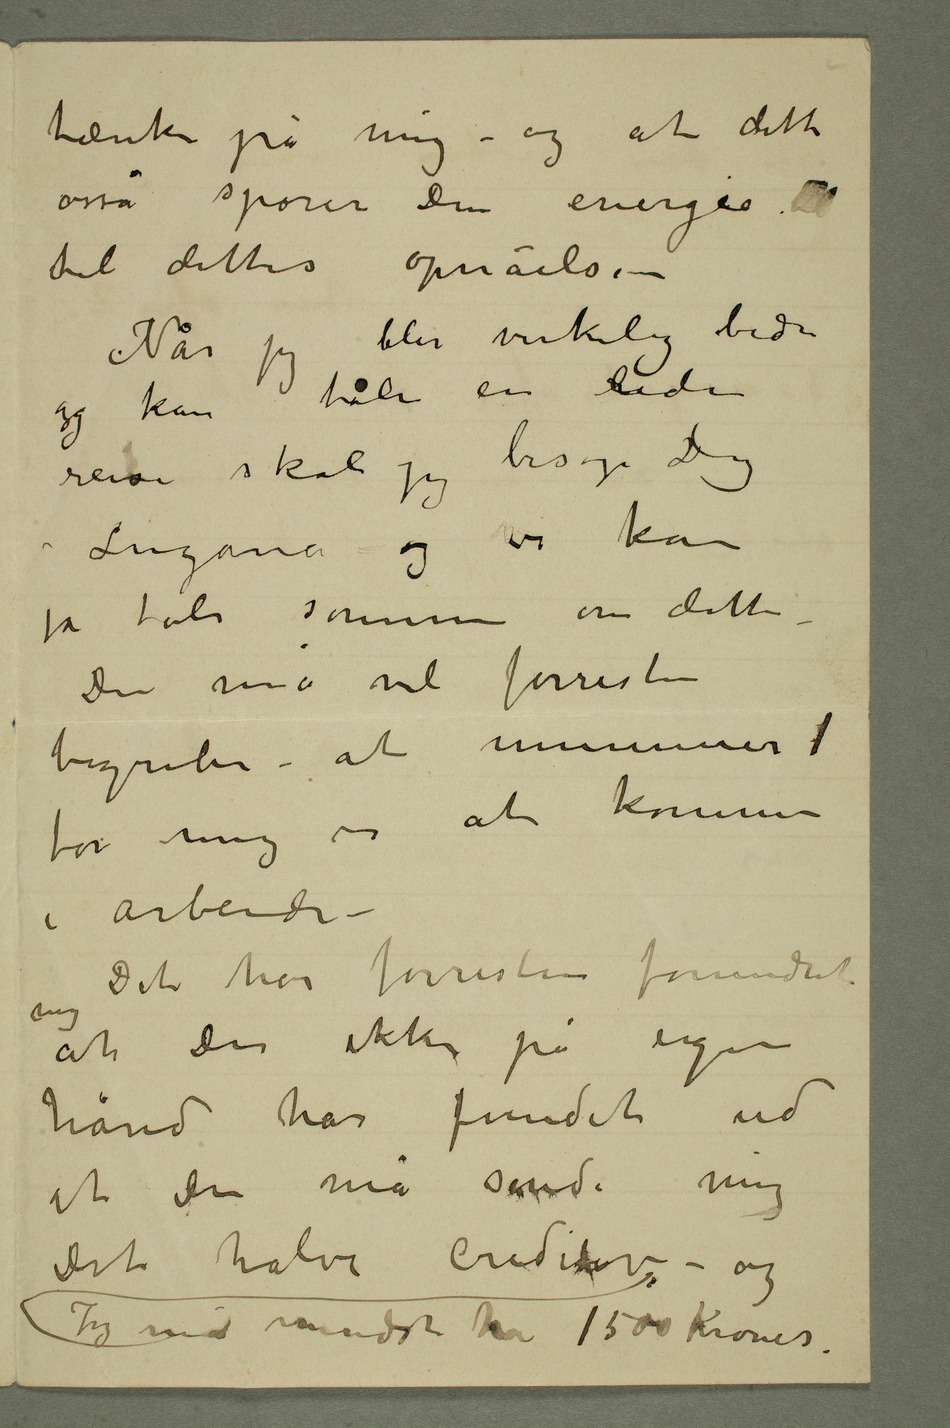 tænke på mig – og at dette
osså sporer Din energie
til dettes opnåelse –
Når jeg blir virkelig bedre
og kan tåle en liden
reise skal jeg besøge Dig
i Lugano og vi kan
jo tale sammen om dette –
Du må vel forresten
begribe – at nummer 1
for mig er at komme
i arbeide –
Det har forresten forundret
mig
at Du ikke på egen
hånd har fundet ud
at Du må sende mig
det halve – og
Jeg må mindst ha 1500 Kroner.